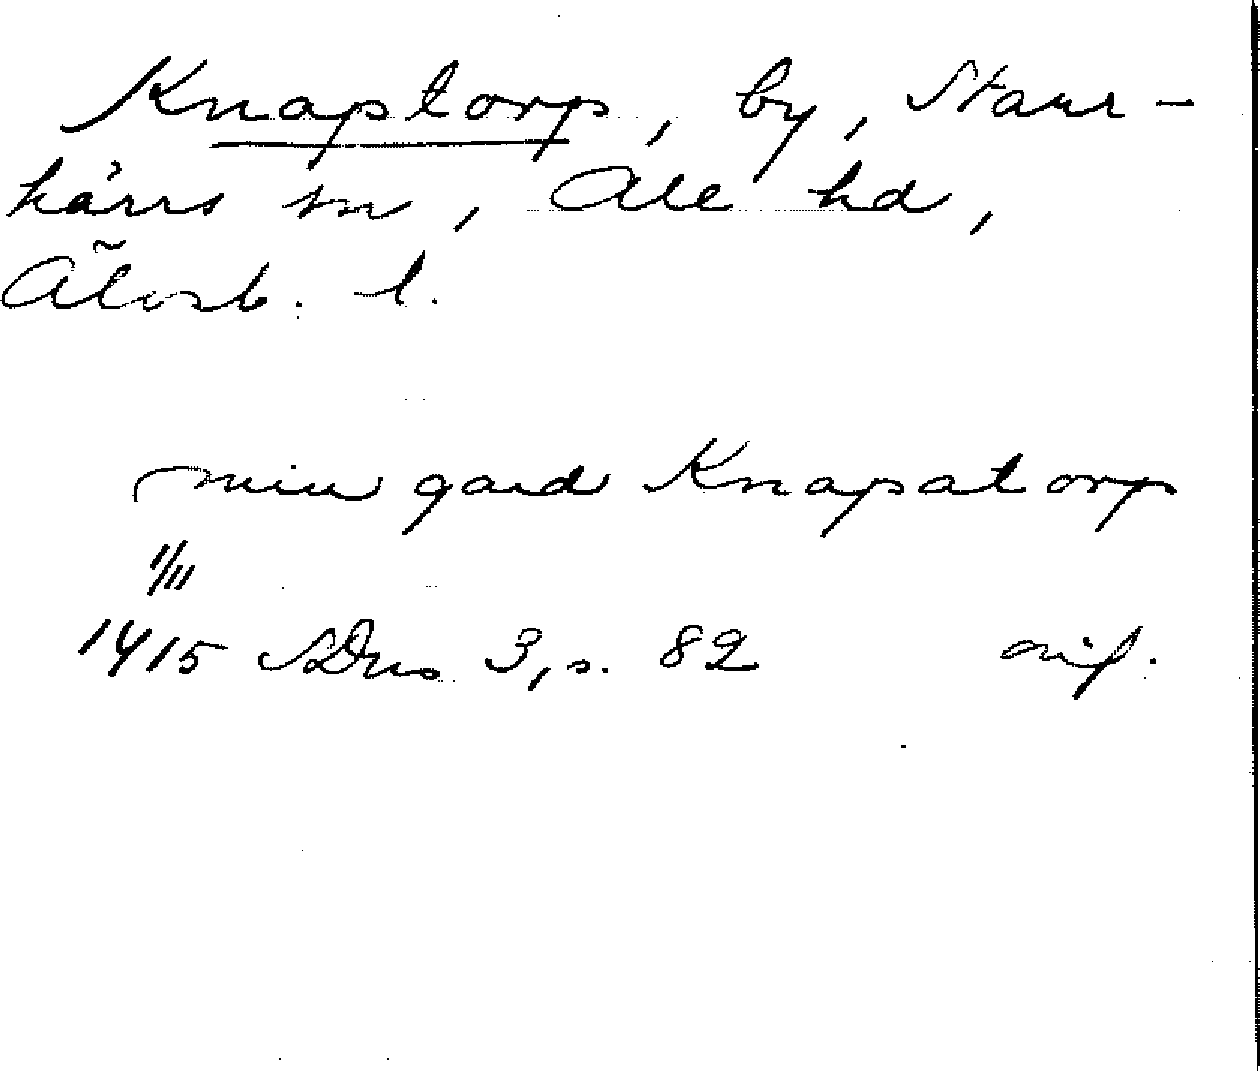 Knaptorp, by, Starr-
kärrs sn, Ale hd,
Älvsb. l.
min gard Knapatorp
1/11
1415 SDns 3, s. 82 avj.